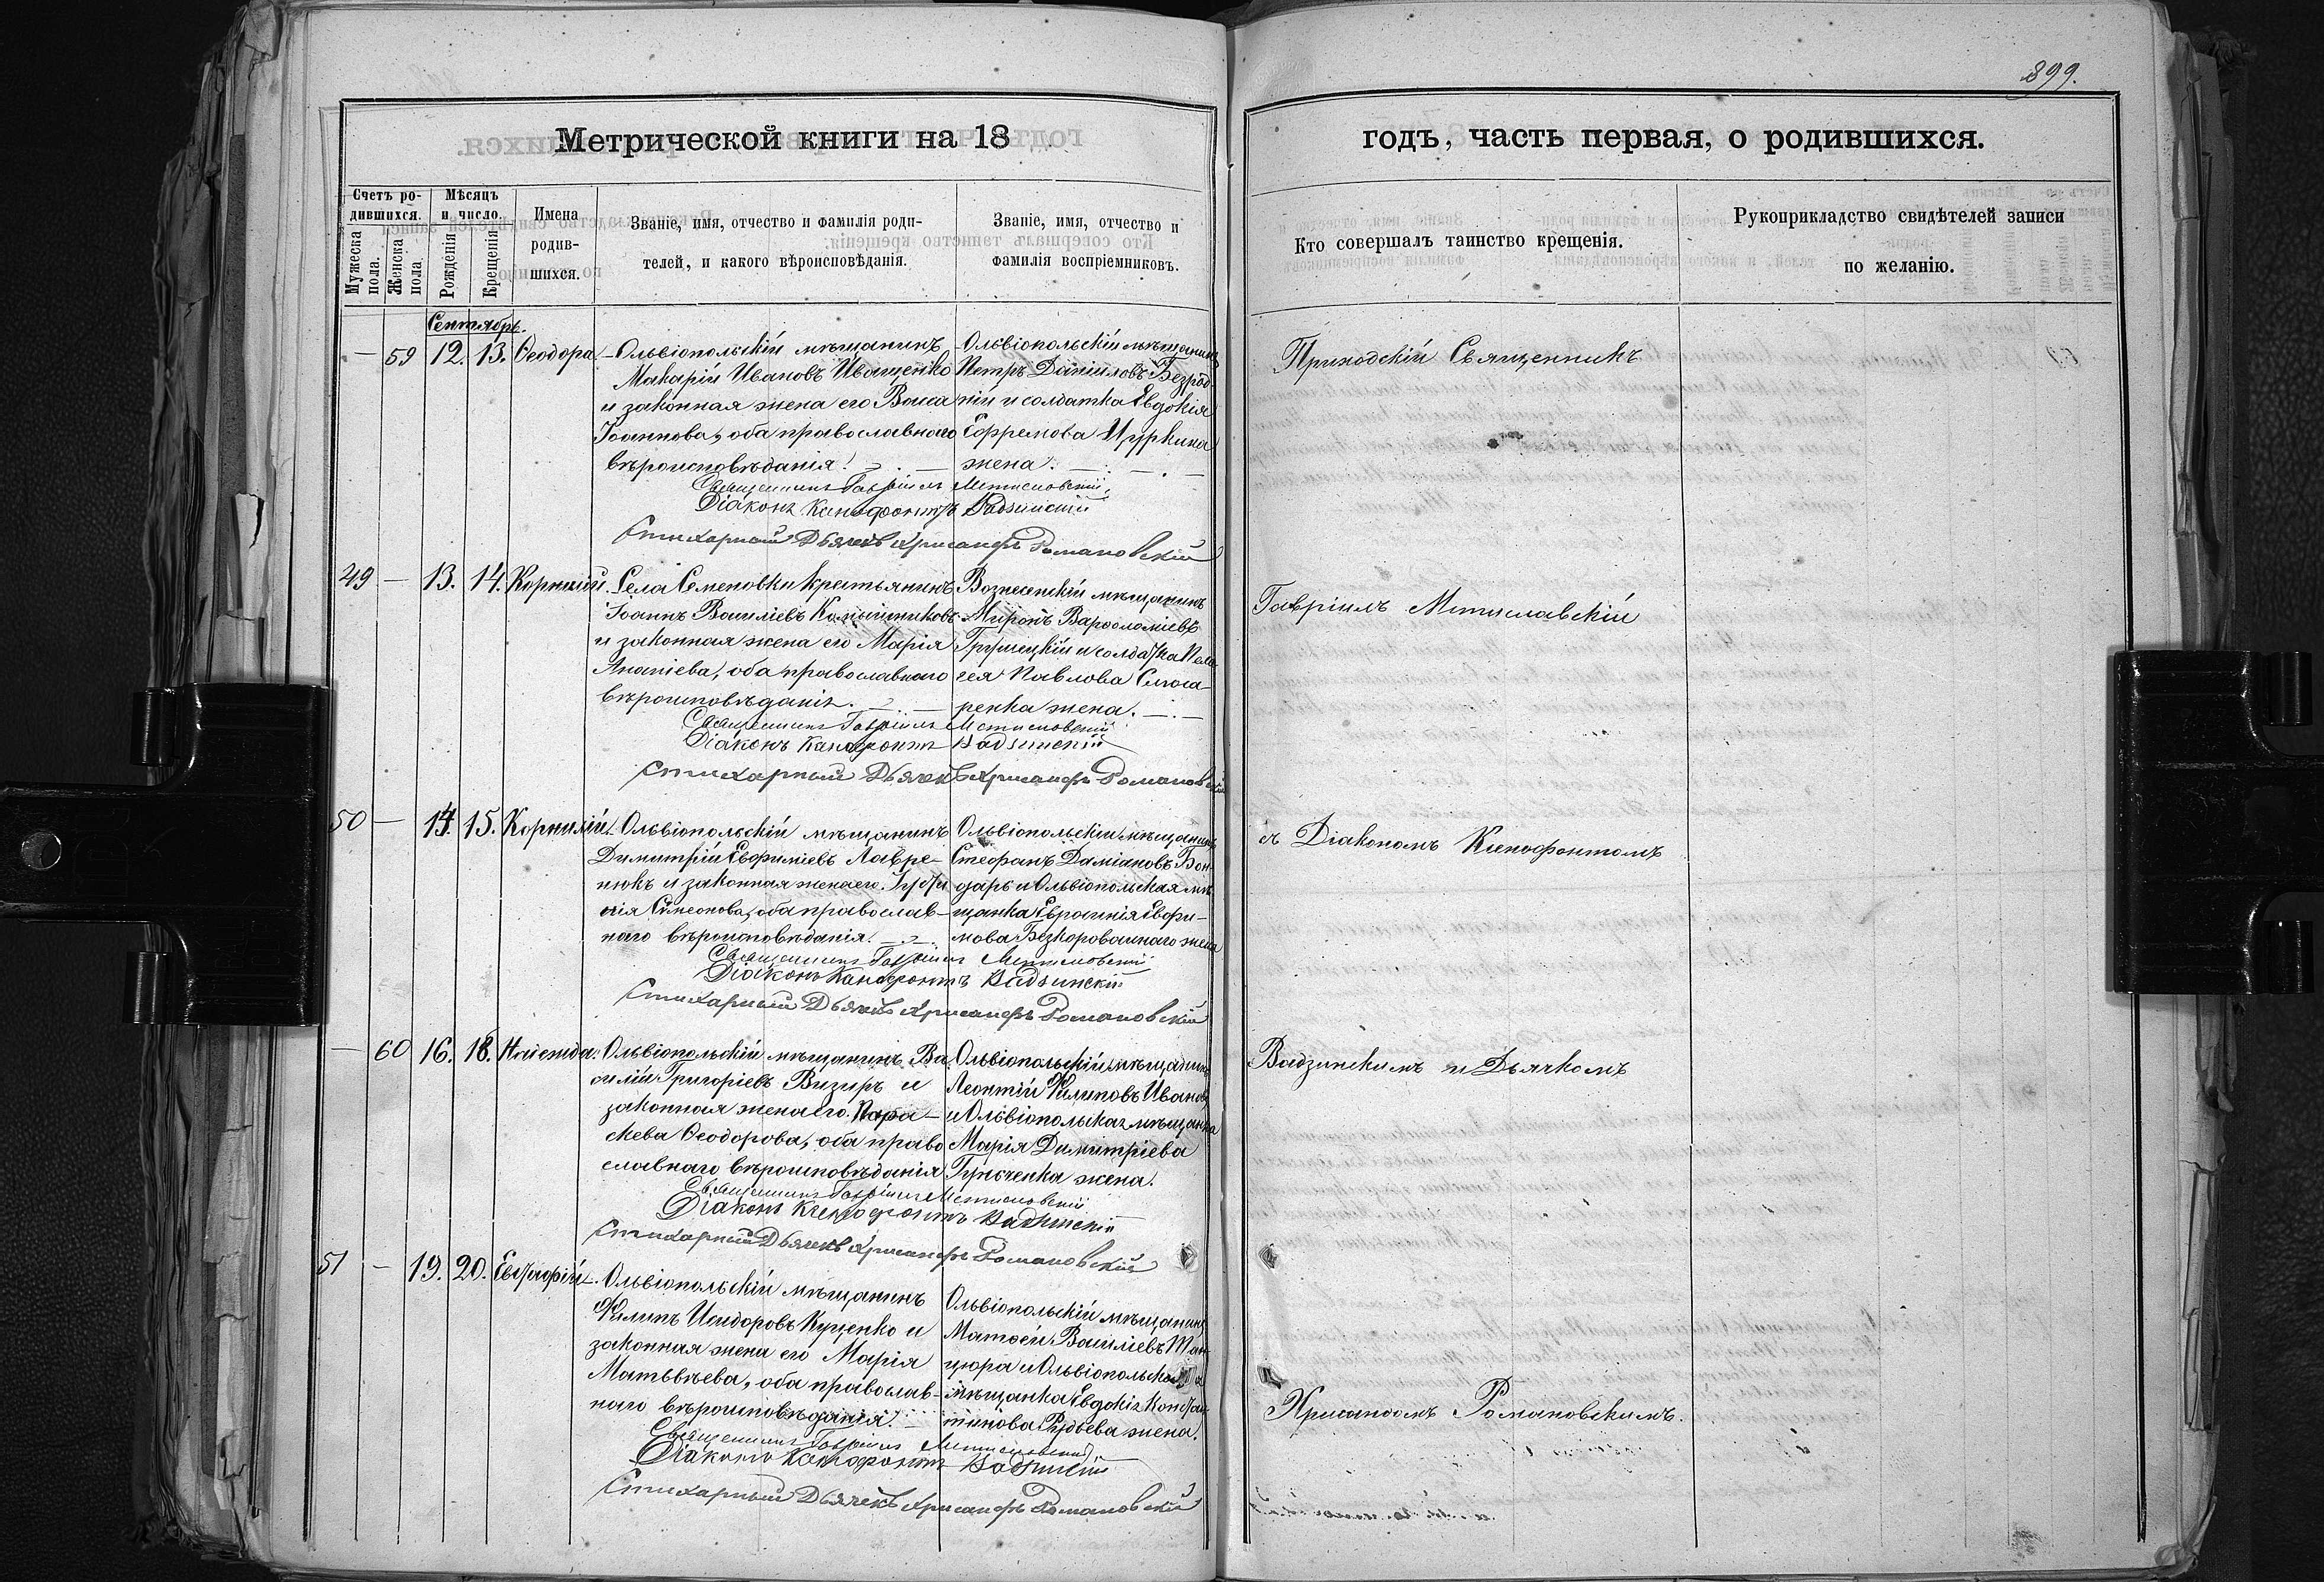 899.
Метрической книги на 18
годъ, часть первая, о родившихся.
Счетъ ро-
дившихся.
Мужеска
пола.
Женска
пола.
Мѣсяцъ
и число.
Рожденія
Крещенія
Имена
родив-
шихся.
Званіе, имя, отчество и фамилія роди-
телей, и какого вѣроисповѣданія.
Званіе, имя, отчество и
фамилія воспріемниковъ.
Кто совершалъ таинство крещенія.
Рукоприкладство свидѣтелей записи
по желанію.
Сентябрь.
— 59 12. 13. Ѳеодора
Ольвіопольскій мѣщанинъ
Макарій Ивановъ Иващенко
и законная жена его Васса
Іоаннова, оба православнаго
вѣроисповѣданія.
Ольвіопольскій мѣщанинъ
Петръ Даніиловъ Безрод-
ній и солдатка Евдокія
Ефремова Цуркина
жена.
Священникъ Гавріилъ Мстиславскій
Діаконъ Ксенофонтъ Вадзинскій
Стихарный Дьячекъ Хрисанфъ Романовскій
49 — 13. 14. Корнилій.
Села Семеновки крестьянинъ
Іоаннъ Василіевъ
и законная жена его Марія
Ананіева, оба православнаго
вѣроисповѣданія.
Вознесенскій мѣщанинъ
Миронъ Варѳоломіевъ
и солдатка Пела-
гея Павлова
ренка жена.
Священникъ Гавріилъ Мстиславскій
Діаконъ Ксенофонтъ Вадзинскій
Стихарный Дьячекъ Хрисанфъ Романовскій
50 — 14. 15. Корнилій.
Ольвіопольскій мѣщанинъ
Димитрій Евфиміевъ Лавре-
нюкъ и законная жена его Іусти-
нія Сімеонова, оба православ-
наго вѣроисповѣданія.
Ольвіопольскій мѣщанинъ
Стефанъ Даміановъ Бон-
дарь и Ольвіопольская мѣ-
щанка Евфросинія Евфи-
мова Безкороваинаго жена
Священникъ Гавріилъ Мстиславскій
Діаконъ Ксенофонтъ Вадзинскій
Стихарный Дьячекъ Хрисанфъ Романовскій
— 60 16. 18.
Ольвіопольскій мѣщанинъ Ва-
силій Григоріевъ Визиръ и
законная жена его Пара-
скева Ѳеодорова, оба право
славнаго вѣроисповѣданія
Ольвіопольскій мѣщанинъ
Леонтій Филиповъ Ивановъ
и Ольвіопольская мѣщанка
Марія Димитріева
жена.
Священникъ Гавріилъ Мстиславскій
Діаконъ Ксенофонтъ Вадзинскій
Стихарный Дьячекъ Хрисанфъ Романовскій
51 — 19. 20. Евстафій.
Ольвіопольскій мѣщанинъ
Филипъ Исидоровъ Куценко и
законная жена его Марія
Матьвѣева, оба православ-
наго вѣроисповѣданія.
Ольвіопольскій мѣщанинъ
Матѳей Василіевъ Ман-
цюра и Ольвіопольская
мѣщанка Евдокія Констан-
тинова жена.
Священникъ Гавріилъ Мстиславскій
Діаконъ Ксенофонтъ Вадзинскій
Стихарный Дьячекъ Хрисанфъ Романовскій
Приходскій Священникъ
Гавріилъ Мстиславскій
съ Діакономъ Ксенофонтомъ
Вадзинскимъ и Дьячкомъ
Хрисанѳомъ Романовскимъ.